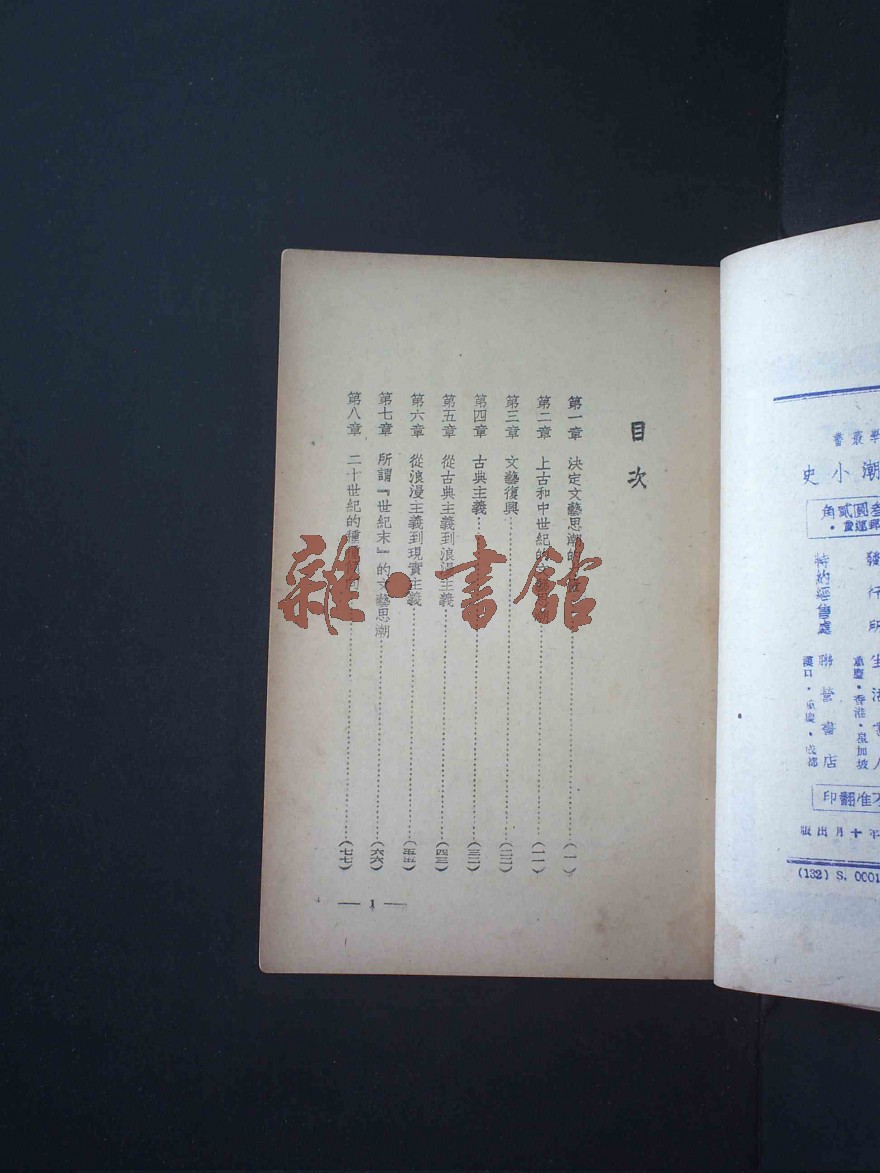 目次
第一章 決定文藝思潮的
第二章 上古和中世紀的文藝
第三章 文藝復興
第四章 古典主義
第五章 從古典主義到浪漫主義
第六章 從浪漫主義到現實主義
第七章 所謂『世紀末』的文藝思潮
第八章 二十世紀的種種傾向
(一)
(一一)
(二二)
(三二)
(四三)
(五五)
(六六)
(七七)
— 1 —
雜·書館
叢書
潮小史
叁圓貳角
發行所 生活書
重慶·香港·星加坡
特約經售處 聯營書店
漢口·重慶·成都
不准翻印
年十月出版
(132) S. 0001